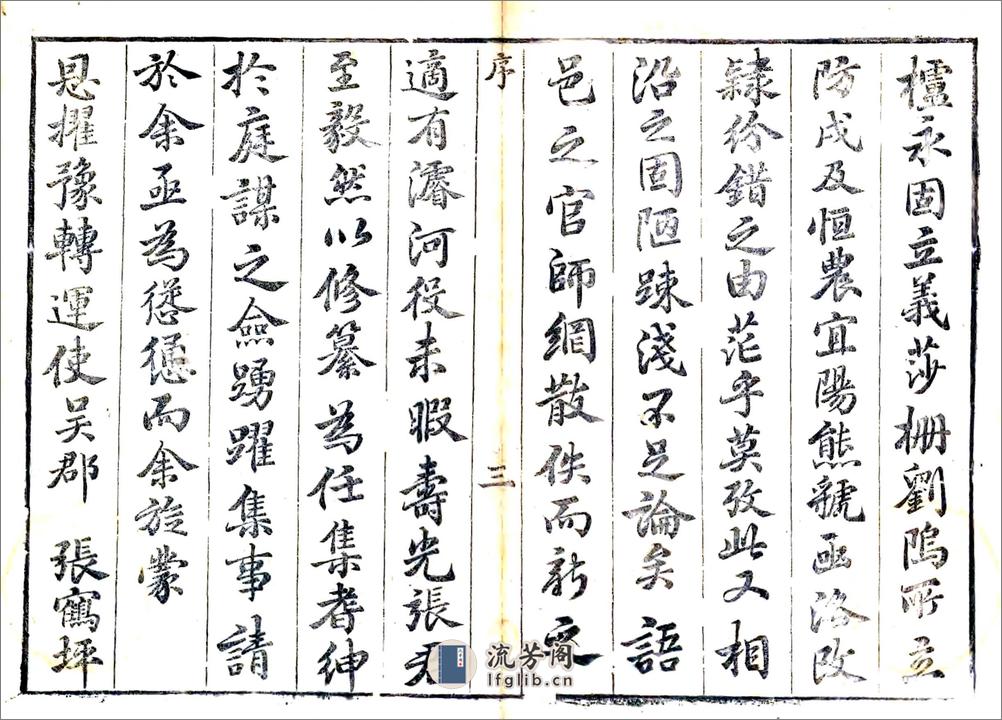 櫨永固立義莎柵劉隖所立
防戍及恒農宜陽熊虢函洛改
隸紛錯之由茫乎莫攷此又相
沿之固陋踈淺不足論矣語
邑之官師網散佚而新
序
三
適有濬河役未暇壽光張
至毅然以修纂為任集耆紳
扵庭謀之僉踴躍集事請
於余亟為慫慂而余旋蒙
恩擢豫轉運使吴郡 張鶴坪
流芳阁
lfglib.cn